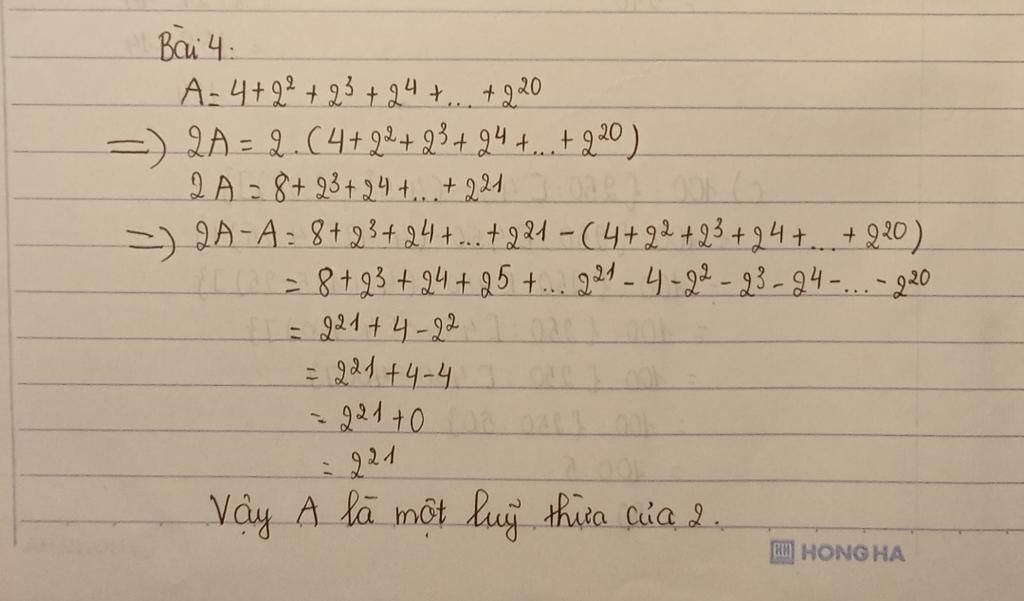 Bài 4:
A = 4 + 2² + 2³ + 2⁴ + ... + 2²⁰
=> 2A = 2. (4 + 2² + 2³ + 2⁴ + ... + 2²⁰)
2A = 8 + 2³ + 2⁴ + ... + 2²¹
=> 2A - A = 8 + 2³ + 2⁴ + ... + 2²¹ - (4 + 2² + 2³ + 2⁴ + ... + 2²⁰)
= 8 + 2³ + 2⁴ + 2⁵ + ... 2²¹ - 4 - 2² - 2³ - 2⁴ - ... - 2²⁰
= 2²¹ + 4 - 2²
= 2²¹ + 4 - 4
= 2²¹ + 0
= 2²¹
Vậy A là một luỹ thừa của 2.
HH HONG HA